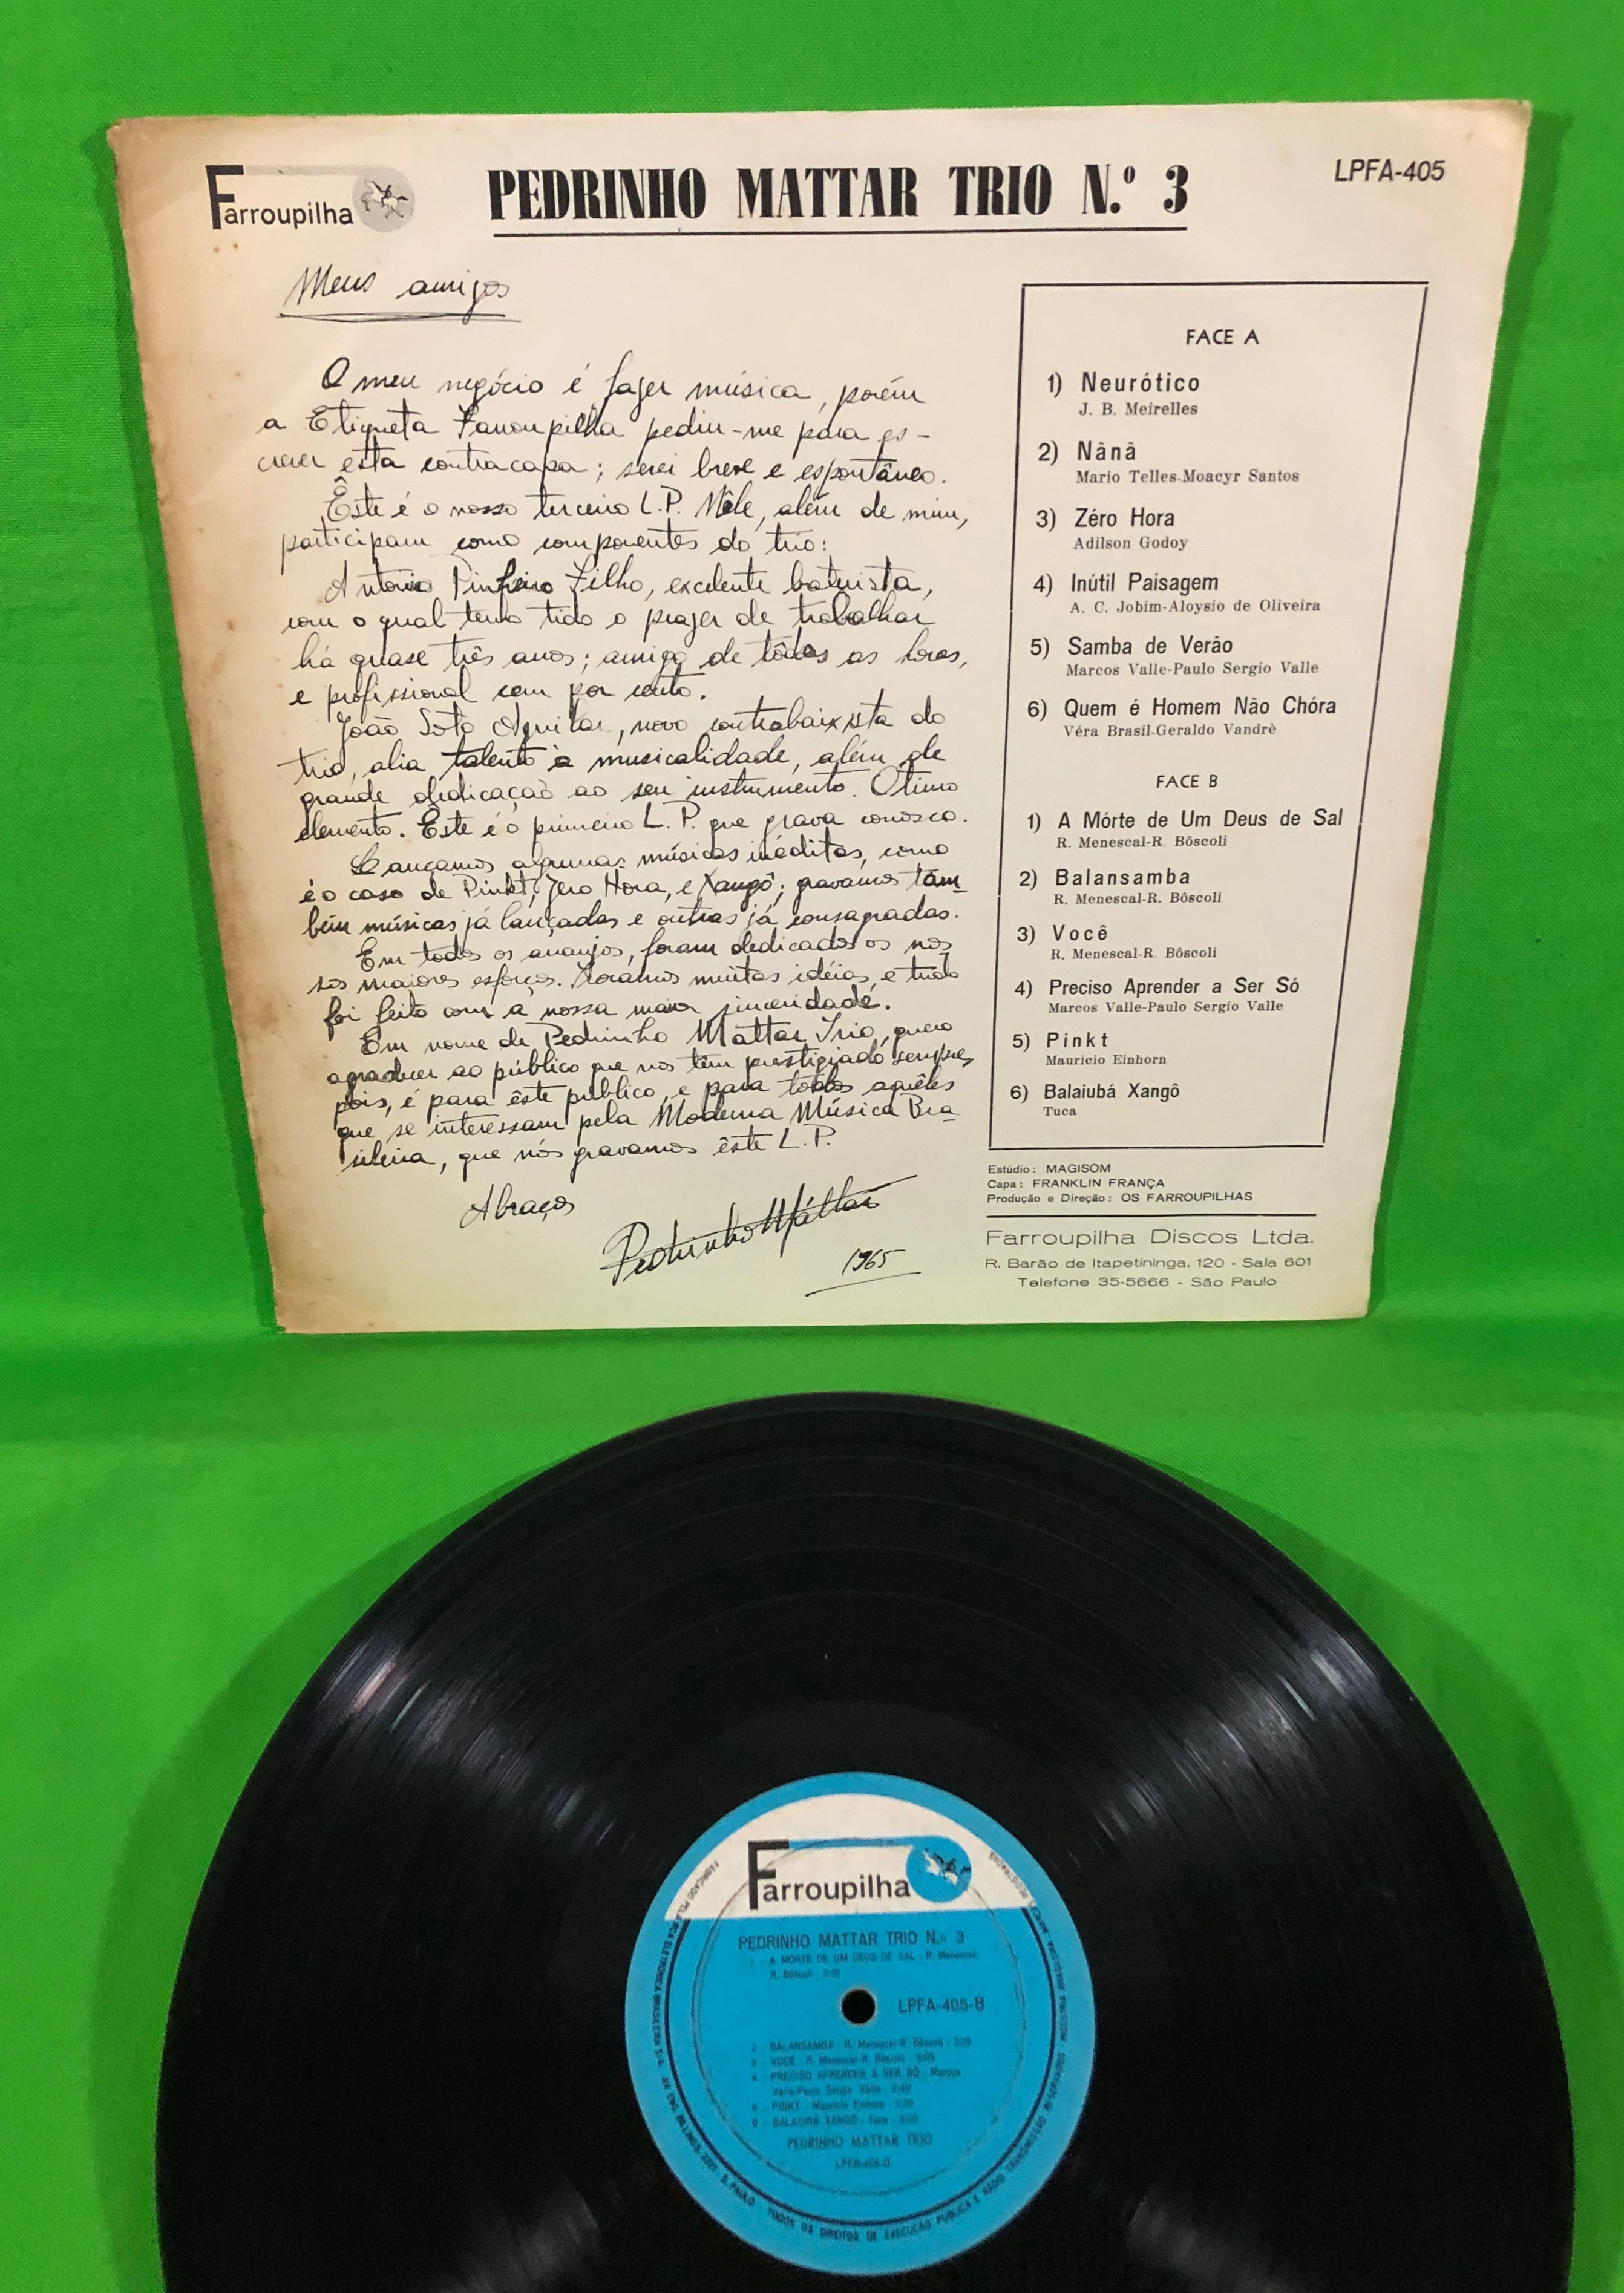 Farroupilha
PEDRINHO MATTAR TRIO N.º 3
LPFA-405
Meus amigos
O meu negócio é fazer música, porém
a Etiqueta Farroupilha pediu-me para es-
crever esta contracapa; serei breve e espontâneo.
Êste é o nosso terceiro L.P. Nêle, além de mim,
participam como componentes do trio:
Antonio Pinheiro Filho, excelente baterista,
com o qual tenho tido o prazer de trabalhar
há quase três anos; amigo de tôdas as horas,
e profissional cem por cento.
João Soto Aguilar, novo contrabaixista do
trio, alia talento à musicalidade, além de
grande dedicação ao seu instrumento. Ótimo
elemento. Êste é o primeiro L.P. que grava conosco.
Lançamos algumas músicas inéditas, como
é o caso de Pinkt, Zero Hora, e Xangô; gravamos tam
bém músicas já lançadas e outras já consagradas.
Em todos os arranjos, foram dedicados os nos
sos maiores esforços. Trocamos muitas idéias, e tudo
foi feito com a nossa maior sinceridade.
Em nome do Pedrinho Mattar Trio, quero
agradecer ao público que nos têm prestigiado sempre,
pois, é para êste público, e para todos aquêles
que se interessam pela Moderna Música Bra
sileira, que nós gravamos êste L.P.
Abraços
Pedrinho Mattar
1965
FACE A
1) Neurótico
J. B. Meirelles
2) Nãnã
Mario Telles-Moacyr Santos
3) Zéro Hora
Adilson Godoy
4) Inútil Paisagem
A. C. Jobim-Aloysio de Oliveira
5) Samba de Verão
Marcos Valle-Paulo Sergio Valle
6) Quem é Homem Não Chóra
Véra Brasil-Geraldo Vandrè
FACE B
1) A Mórte de Um Deus de Sal
R. Menescal-R. Bôscoli
2) Balansamba
R. Menescal-R. Bôscoli
3) Você
R. Menescal-R. Bôscoli
4) Preciso Aprender a Ser Só
Marcos Valle-Paulo Sergio Valle
5) Pinkt
Mauricio Einhorn
6) Balaiubá Xangô
Tuca
Estúdio: MAGISOM
Capa: FRANKLIN FRANÇA
Produção e Direção: OS FARROUPILHAS
Farroupilha Discos Ltda.
R. Barão de Itapetininga, 120 - Sala 601
Telefone 35-5666 - São Paulo
Farroupilha
PEDRINHO MATTAR TRIO N.º 3
1 - A MORTE DE UM DEUS DE SAL - R. Menescal-
R. Bôscoli
LPFA-405-B
2 - BALANSAMBA - R. Menescal-R. Bôscoli
3 - VOCÊ - R. Menescal-R. Bôscoli
4 - PRECISO APRENDER A SER SÓ - Marcos
Valle-Paulo Sergio Valle
5 - PINKT - Mauricio Einhorn
6 - BALAIUBÁ XANGÔ - Tuca
PEDRINHO MATTAR TRIO
FABRICADO PELA RCA ELETRONICA BRASILEIRA S/A
S. PAULO - TODOS OS DIREITOS DE EXECUÇÃO PUBLICA E RADIO TRANSMISSÃO